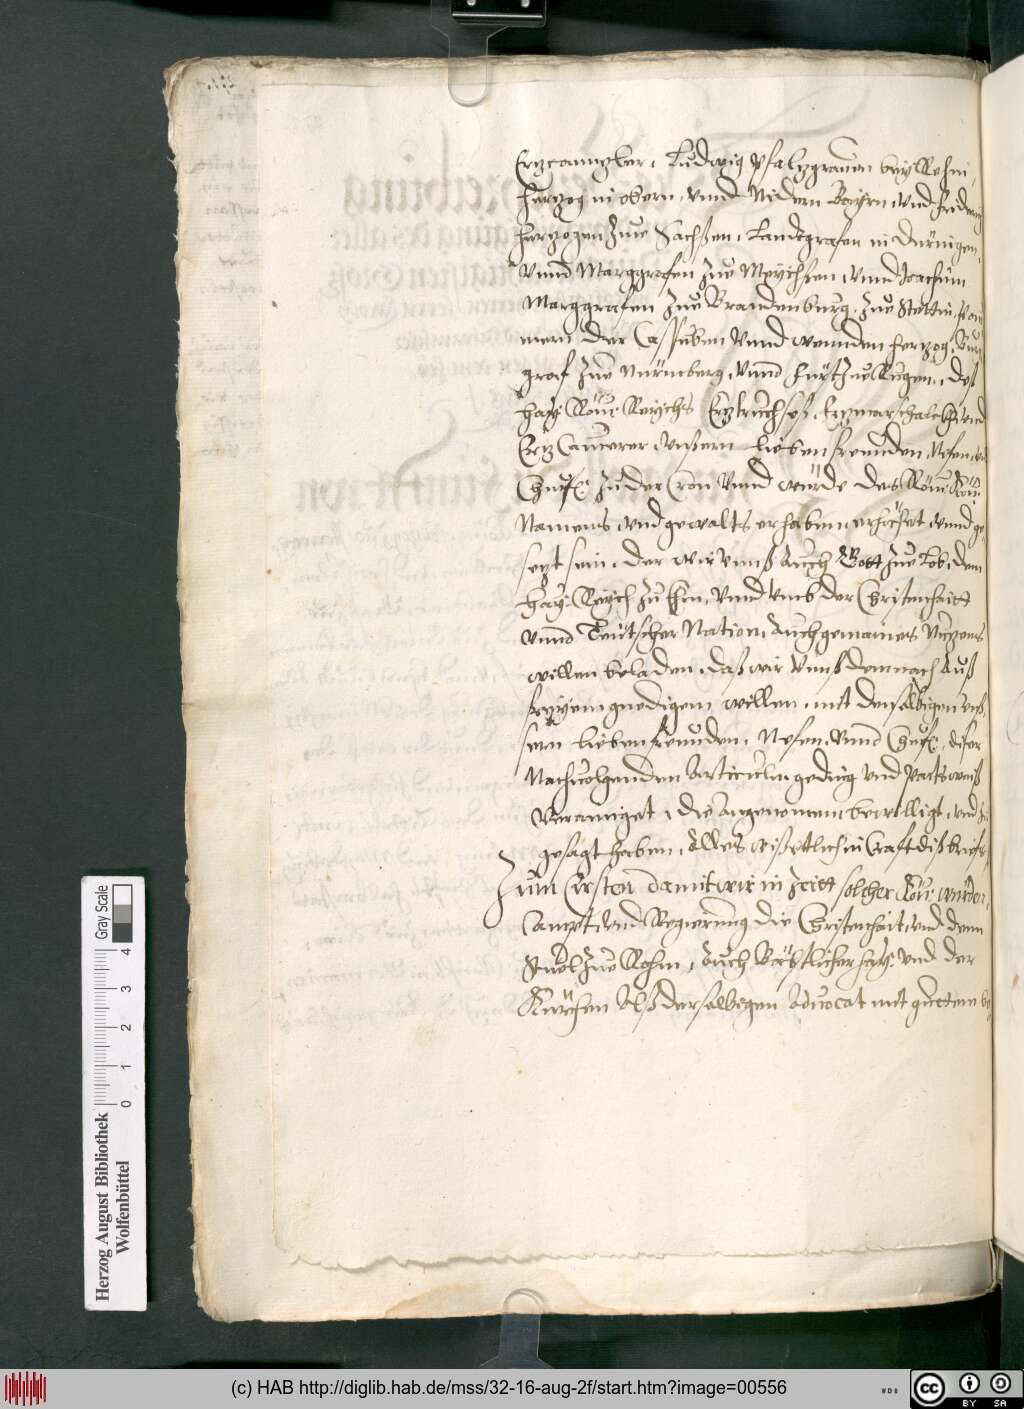 Ertzcanntzler, Ludwig Pfaltzgrauen bey Rehin,
Hertzog in obern, vnnd Nidern Bayrn, vnd Friderich
Hertzogen zue Sachßen, Landtgrafen in Duringen,
vnnd Marggrafen zue Meychsen, vnnd Joachim
Marggrafen zue Brandenburg, zue Stettin, Pom
mern der Cassuben vnnd wennden Hertzog, Burg
graf zue Nurmberg, vnnd Furst zue Rugen, deß
hay: Röm: Reychs Ertztruchseß, Ertzmarschalckh vnd
Ertz Camerer, vnßern lieben freunden, Nefen, vnd
Churf: zu der Cron vnnd würde des Röm: Kön:
Namens, vnd gewalts erhaben, erhöhet, vnnd ge,
setzt sein, der wir vnnß auch Gott zue Lob, dem
hay: Reych zu Ehrn, vnnd vmb der Cristenhaitt
vnnd Teutscher Nation, auch gemaines Nutzens
willen beladen, daß wir vnnß demnach auß
freyem gnedigem willen, mit denselbigen vnß,
sern lieben freunden, Nefen, vnnd Churf:, diser
Nachuolgenden Articuln geding vnd pacts weiß
veraniget, die angenomen, bewilligt, vnd zu
gesagt haben, Alles wißentlich in Craft diß briefs,
Zum Ersten damit wir in Zeitt solcher Kön: würden,
Campt, vnd Regierung die Cristenhait, vnd denn
Stuel zue Rohm, auch Bäbstlicher hay: vnd der
Kurchen Alß derselbegen Aduocat mit guettem be,
Herzog August Bibliothek
Wolfenbüttel
Gray Scale
0 1 2 3 4
(c) HAB http://diglib.hab.de/mss/32-16-aug-2f/start.htm?image=00556
WDB
CC BY SA